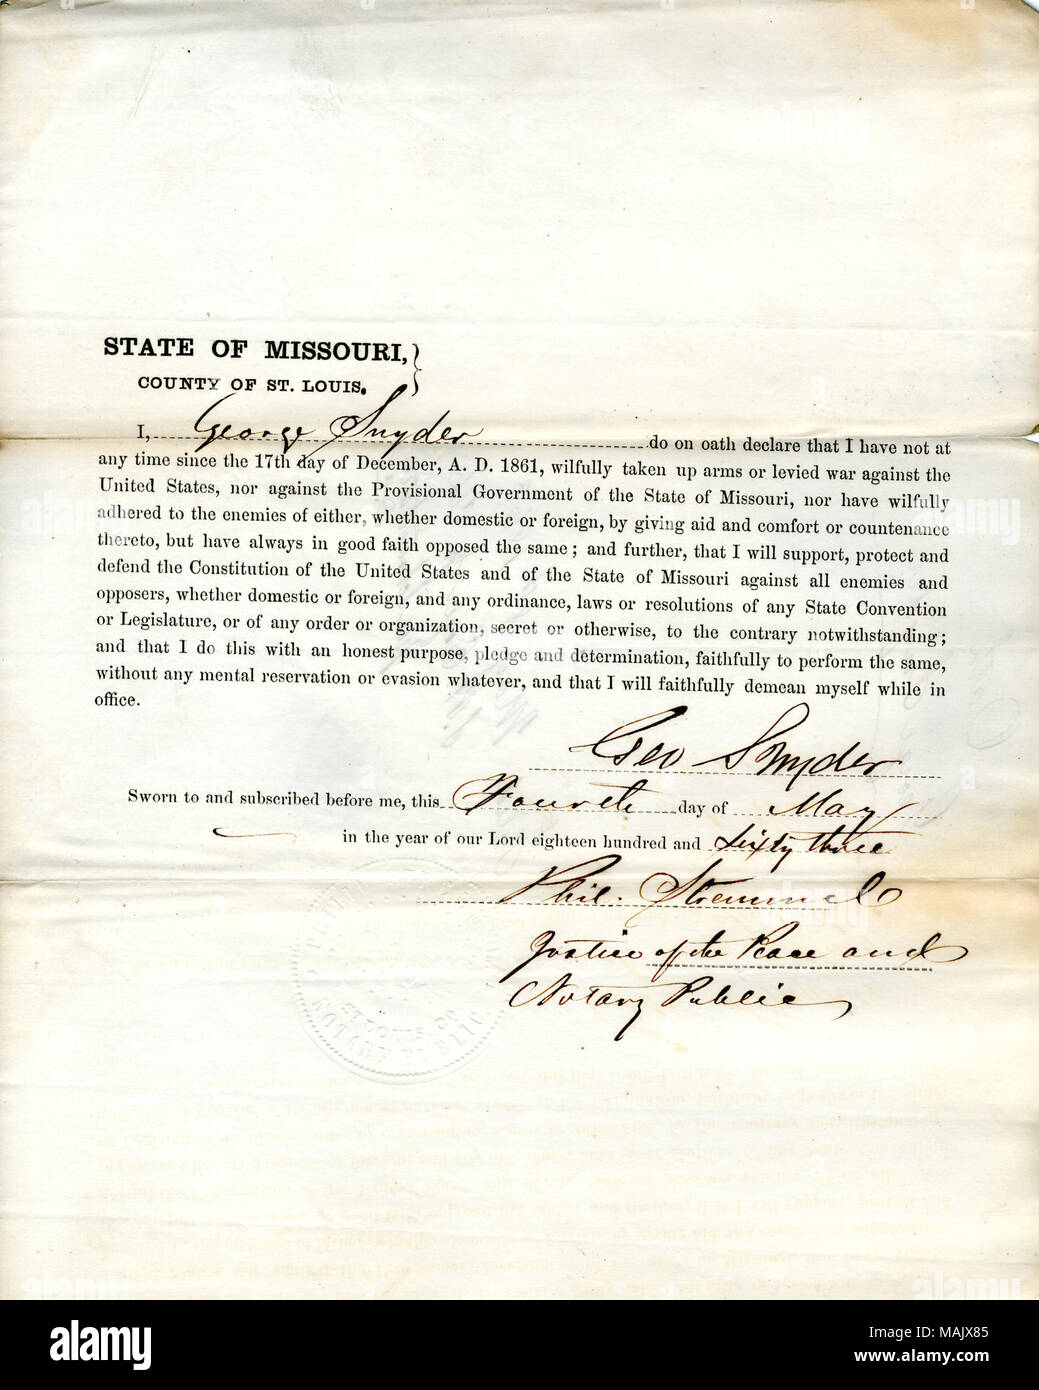 STATE OF MISSOURI,
COUNTY OF ST. LOUIS.
I, George Snyder do on oath declare that I have not at
any time since the 17th day of December, A. D. 1861, wilfully taken up arms or levied war against the
United States, nor against the Provisional Government of the State of Missouri, nor have wilfully
adhered to the enemies of either, whether domestic or foreign, by giving aid and comfort or countenance
thereto, but have always in good faith opposed the same; and further, that I will support, protect and
defend the Constitution of the United States and of the State of Missouri against all enemies and
opposers, whether domestic or foreign, and any ordinance, laws or resolutions of any State Convention
or Legislature, or of any order or organization, secret or otherwise, to the contrary notwithstanding;
and that I do this with an honest purpose, pledge and determination, faithfully to perform the same,
without any mental reservation or evasion whatever, and that I will faithfully demean myself while in
office.
Geo Snyder
Sworn to and subscribed before me, this Fourth day of May
in the year of our Lord eighteen hundred and sixty three
Phil. Stremmel
Justice of the Peace and
Notary Public
ST LOUIS CO
NOTARY PUBLIC.
alamy
Image ID: MAJX85
www.alamy.com